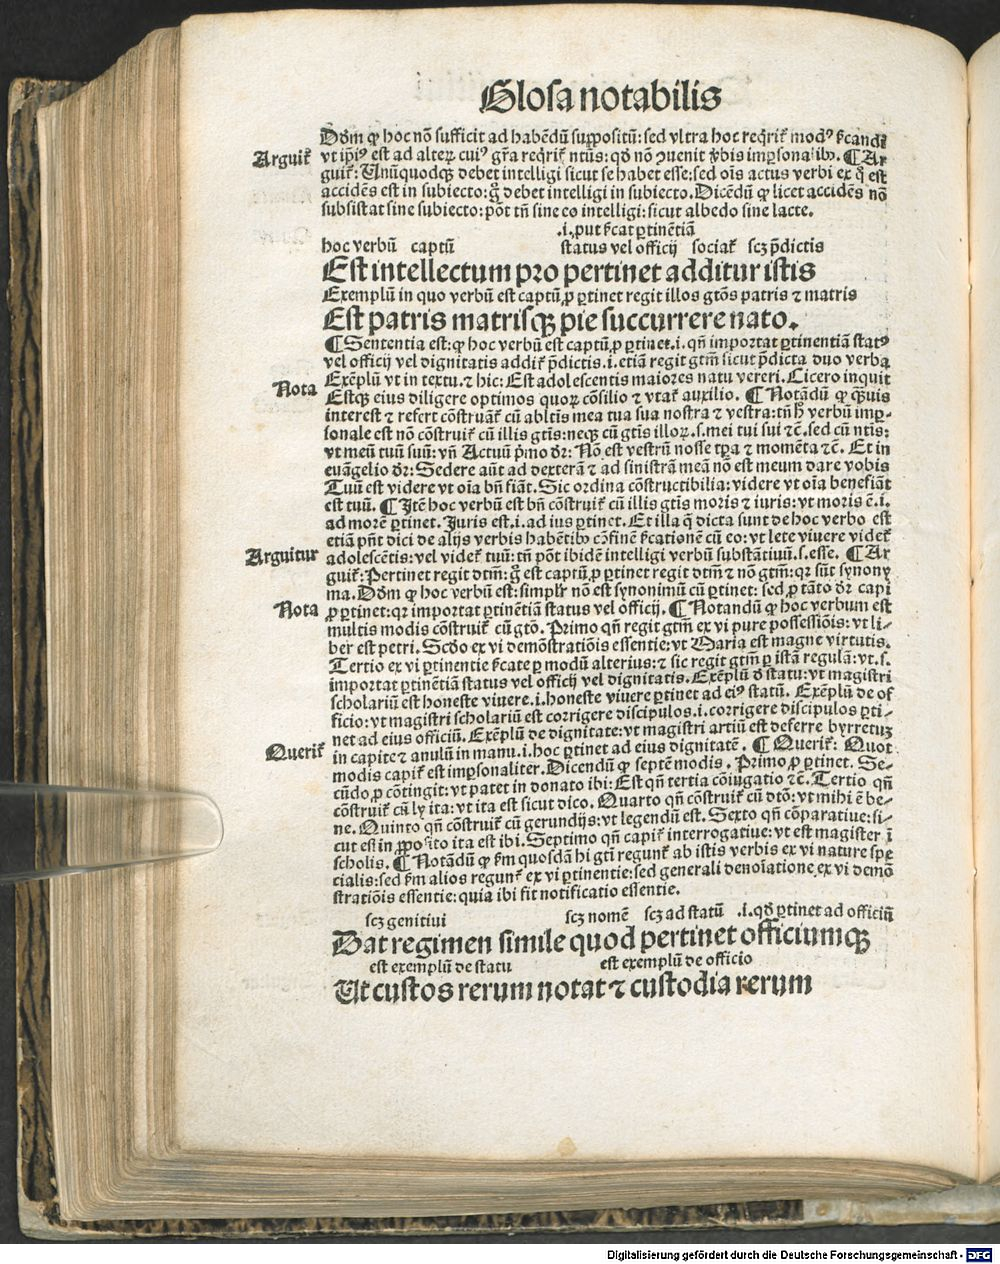 Glosa notabilis
Dōm ꝙ hoc nō sufficit ad habēdū suppositū: sed vltra hoc reqrit̄ modꝰ
Arguit̄ vt ipīꝰ est ad alterꝝ cuiꝰ gr̄a reqrit̄ ntūs: ¶ Ar
guit̄: Vnūquodqꝫ debet intelligi sicut se habet esse: sed oīs actus verbi ex est
accidēs est in subiecto: debet intelligi in subiecto. Dicēdū ꝙ licet accidēs nō
subsistat sine subiecto: pōt tn̄ sine eo intelligi: sicut albedo sine lacte.
.i. ꝑtinētiā
hoc verbū captū status vel officij sociat̄ scꝫ p̄dictis
Est intellectum pro pertinet additur istis
Exemplū in quo verbū est captū ꝓ ꝑtinet regit illos gtōs patris ⁊ matris
Est patris matrisqꝫ pie succurrere nato.
¶ Sententia est: ꝙ hoc verbū est captū ꝓ ꝑtinet .i. qn̄ importat ꝑtinentiā statꝰ
vel officij vel dignitatis addit̄ p̄dictis .i. etiā regit gtm̄ sicut p̄dicta duo verba
Exēplū vt in textu. ⁊ hic: Est adolescentis maiores natu vereri. Cicero inquit
Nota Estqꝫ eius diligere optimos quoꝝ cōsilio ⁊ vtat̄ auxilio. ¶ Notādū ꝙ qꝫuis
interest ⁊ refert cōstruāt̄ cū abltīs mea tua sua nostra ⁊ vestra: tn̄ verbū imꝑ-
sonale est nō cōstruit̄ cū illis gtīs: neqꝫ cū gtīs illoꝝ .s. mei tui sui ⁊c̄. sed cū ntīs:
vt meū tuū suū: vn̄ Actuū p̄mo dr̄: Nō est vestrū nosse tꝑa ⁊ momēta ⁊c̄. Et in
euāgelio dr̄: Sedere aūt ad dexterā ⁊ ad sinistrā meā nō est meum dare vobis
Tuū est videre vt oīa bn̄ fiāt. Sic ordina cōstructibilia: videre vt oīa benefiāt
est tuū. ¶ Jtē hoc verbū est bn̄ cōstruit̄ cū illis gtīs moris ⁊ iuris: vt moris ē .i.
ad morē ꝑtinet. Juris est .i. ad ius ꝑtinet. Et illa q̄ dicta sunt de hoc verbo est
etiā pn̄t dici de alijs verbis habētibꝰ cū eo: vt lete viuere videt̄
Arguitur adolescētis: vel videt̄ tuū: tn̄ pōt ibidē intelligi verbū substātiuū .s. esse. ¶ Ar
guit̄: Pertinet regit dtm̄: est captū ꝓ ꝑtinet regit dtm̄ ⁊ nō gtm̄: qr sūt synony
ma. Dōm ꝙ hoc verbū est: simplr̄ nō est synonimū cū ꝑtinet: sed ꝓ tāto dr̄ capi
Nota ꝓ ꝑtinet: qr importat ꝑtinētiā status vel officij. ¶ Notandū ꝙ hoc verbum est
multis modis cōstruit̄ cū gtō. Primo qn̄ regit gtm̄ ex vi pure possessiōis: vt li-
ber est petri. Scdo ex vi demōstratiōis essentie: vt Maria est magne virtutis.
Tertio ex vi ꝑtinentie ꝑ modū alterius: ⁊ sic regit gtm̄ ꝑ istā regulā: vt .s.
importat ꝑtinētiā status vel officij vel dignitatis. Exēplū statu: vt magistri
scholariū est honeste viuere .i. honeste viuere ꝑtinet ad eiꝰ statū. Exēplū de of
ficio: vt magistri scholariū est corrigere discipulos .i. corrigere discipulos ꝑti-
net ad eius officiū. Exēplū de dignitate: vt magistri artiū est deferre byrretuꝫ
Querit̄ in capite ⁊ anulū in manu .i. hoc ꝑtinet ad eius dignitatē. ¶ Querit̄: Quot
modis capit̄ est imꝑsonaliter. Dicendū ꝙ septē modis. Primo ꝓ ꝑtinet. Se-
cūdo ꝓ cōtingit: vt patet in donato ibi: Est qn̄ tertia cōiugatio ⁊c̄. Tertio qn̄
cōstruit̄ cū ly ita: vt ita est sicut dico. Quarto qn̄ cōstruit̄ cū dtō: vt mihi ē be-
ne. Quinto qn̄ cōstruit̄ cū gerundijs: vt legendū est. Sexto qn̄ cōparatiue: si-
cut est in ita est ibi. Septimo qn̄ capit̄ interrogatiue: vt est magister ī
scholis. ¶ Notādū ꝙ quosdā hi gtī regunt̄ ab istis verbis ex vi nature spe
cialis: sed alios regunt̄ ex vi ꝑtinentie: sed generali denoīatione ex vi demō
stratiōis essentie: quia ibi fit notificatio essentie.
scꝫ genitiui scꝫ nomē scꝫ ad statū .i. ꝑtinet ad officiū
Dat regimen simile quod pertinet officiumqꝫ
est exemplū de statu est exemplū de officio
Ut custos rerum notat ⁊ custodia rerum
Digitalisierung gefördert durch die Deutsche Forschungsgemeinschaft - DFG